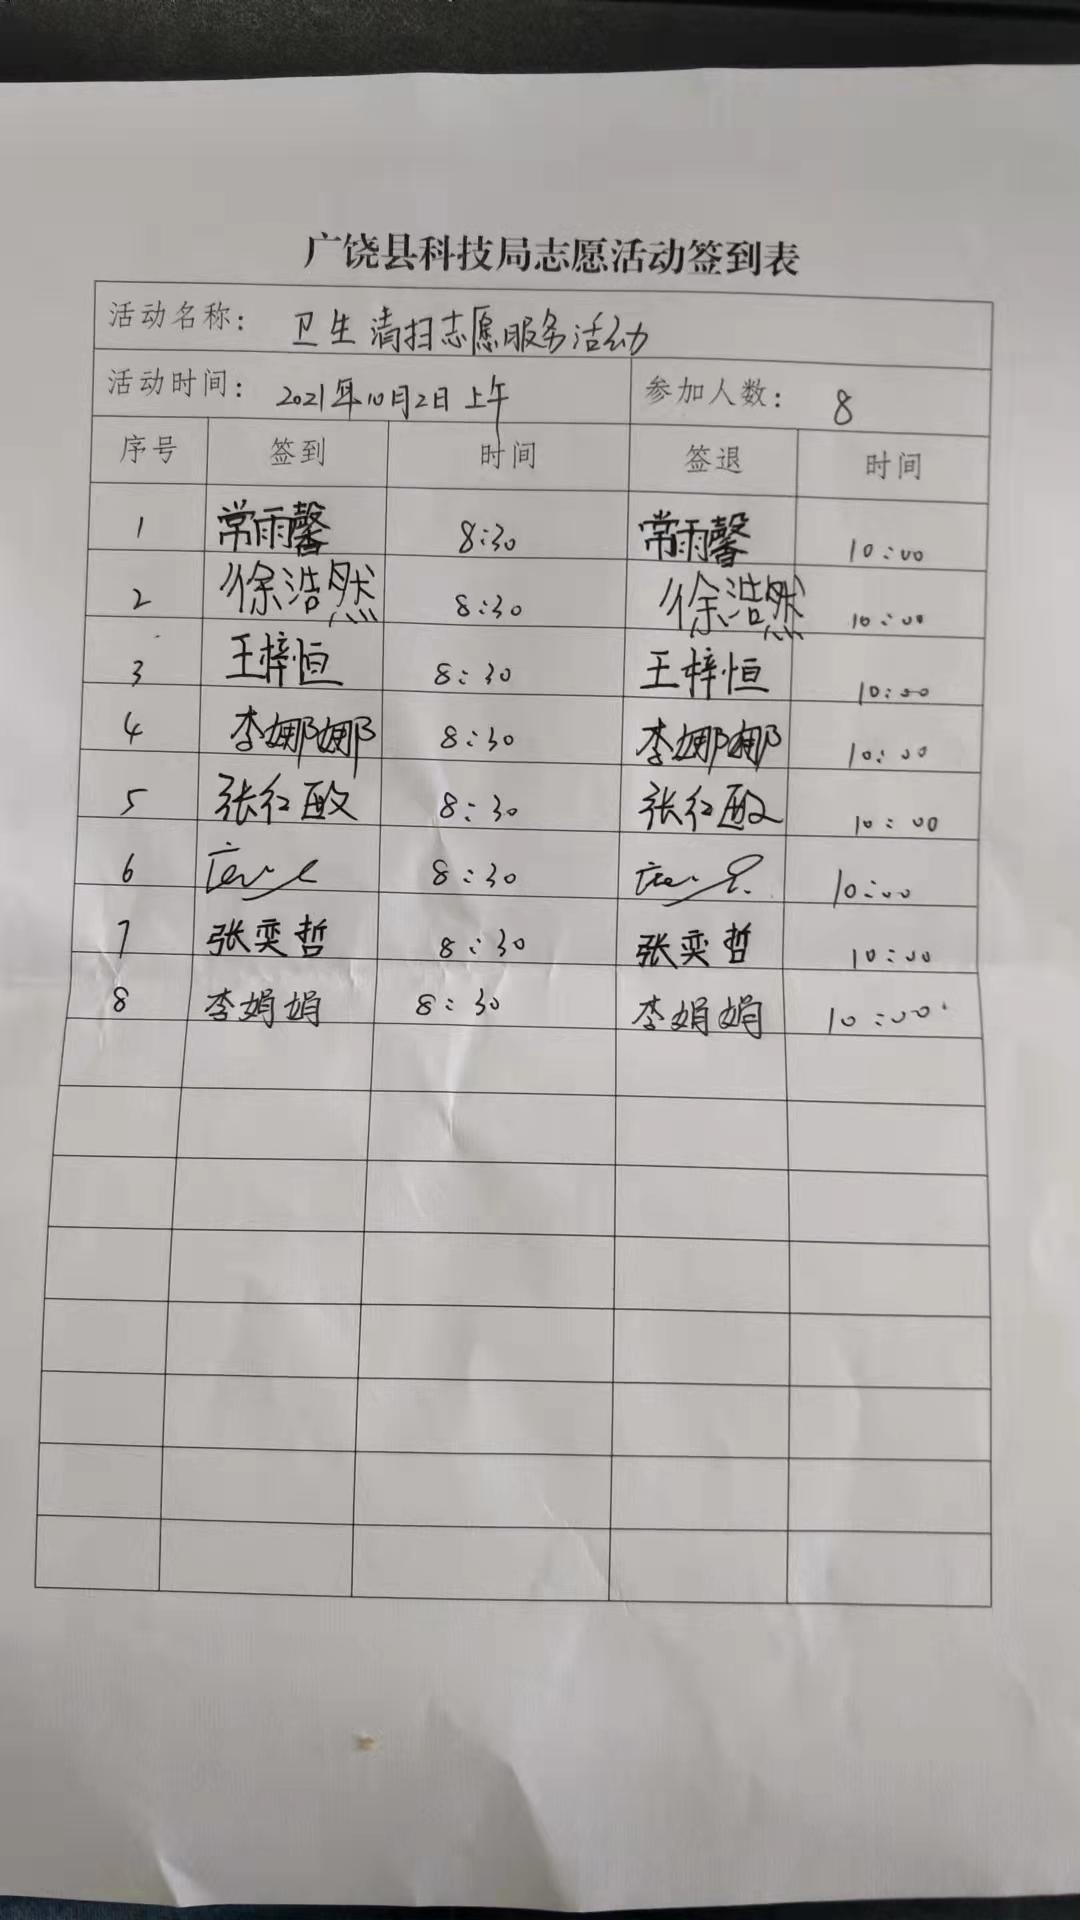 广饶县科技局志愿活动签到表
活动名称： 卫生清扫志愿服务活动
活动时间： 2021年10月2日上午 参加人数： 8
序号 签到 时间 签退 时间
1 常雨馨 8:30 常雨馨 10:00
2 徐浩然 8:30 徐浩然 10:00
3 王梓恒 8:30 王梓恒 10:00
4 李娜娜 8:30 李娜娜 10:00
5 张红敏 8:30 张红敏 10:00
6 8:30 10:00
7 张奕哲 8:30 张奕哲 10:00
8 李娟娟 8:30 李娟娟 10:00